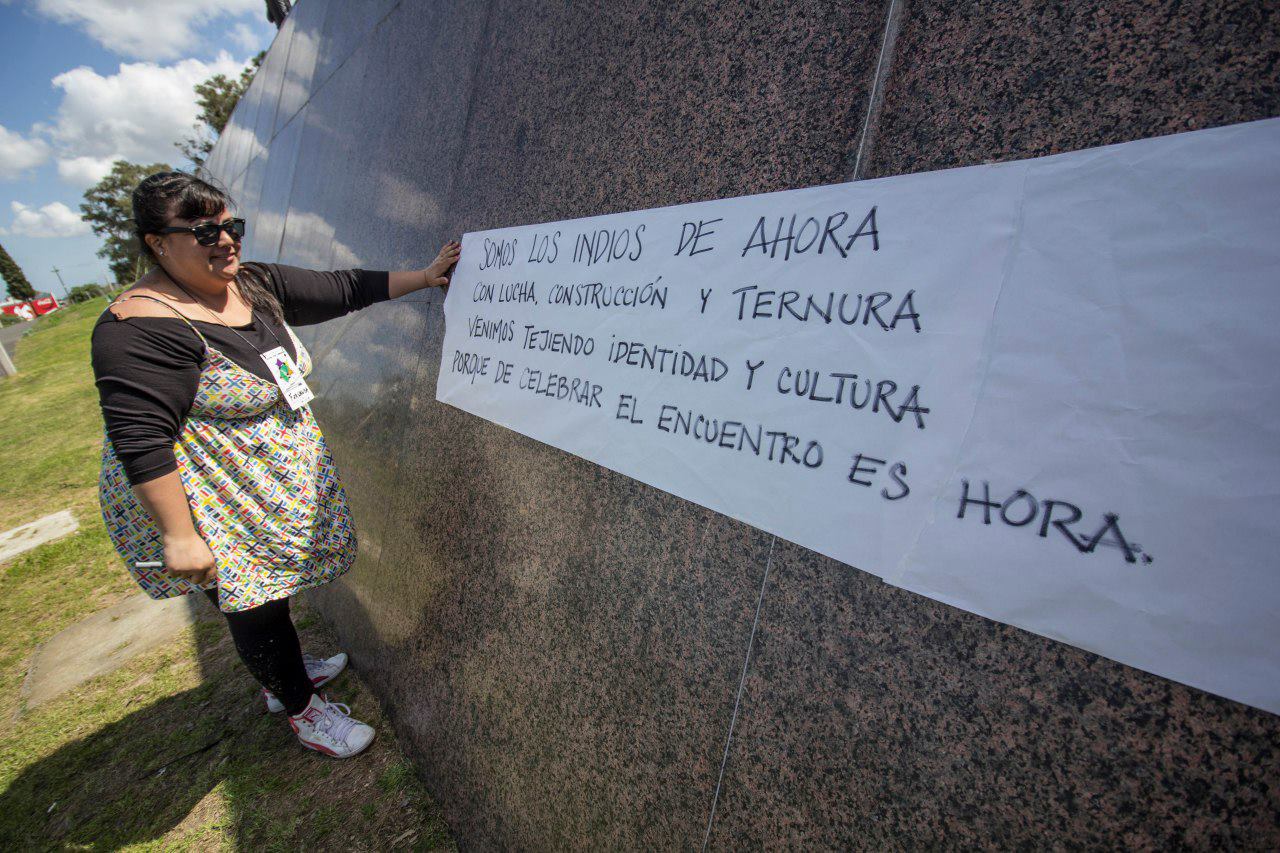 SOMOS LOS INDIOS DE AHORA
CON LUCHA, CONSTRUCCIÓN Y TERNURA
VENIMOS TEJIENDO IDENTIDAD Y CULTURA
PORQUE DE CELEBRAR EL ENCUENTRO ES HORA.